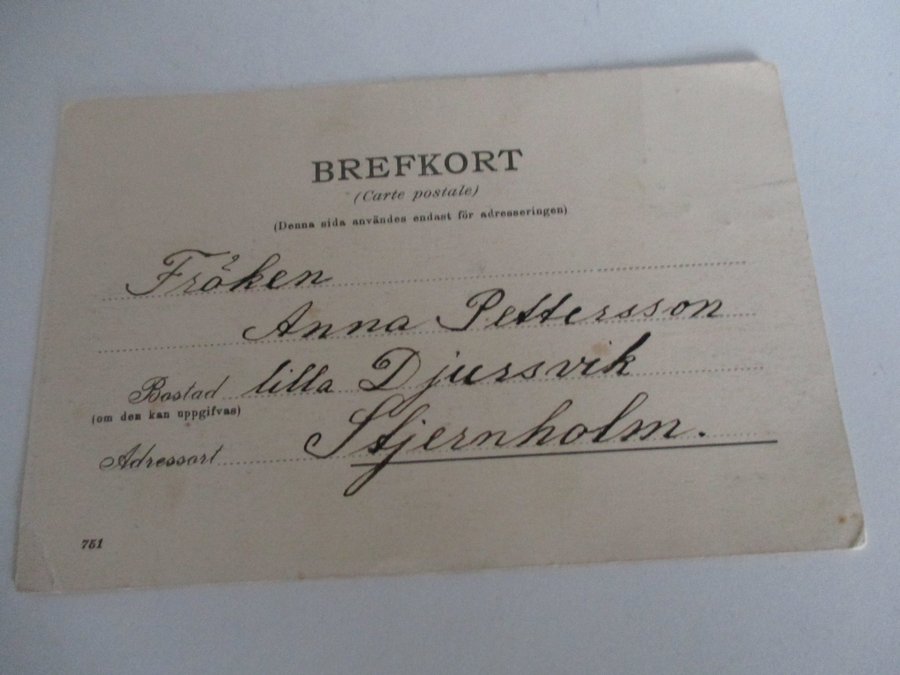 BREFKORT
(Carte postale)
(Denna sida användes endast för adresseringen)
Fröken
Anna Pettersson
Bostad lilla Djursvik
(om den kan uppgifvas)
Adressort Stjernholm.
751